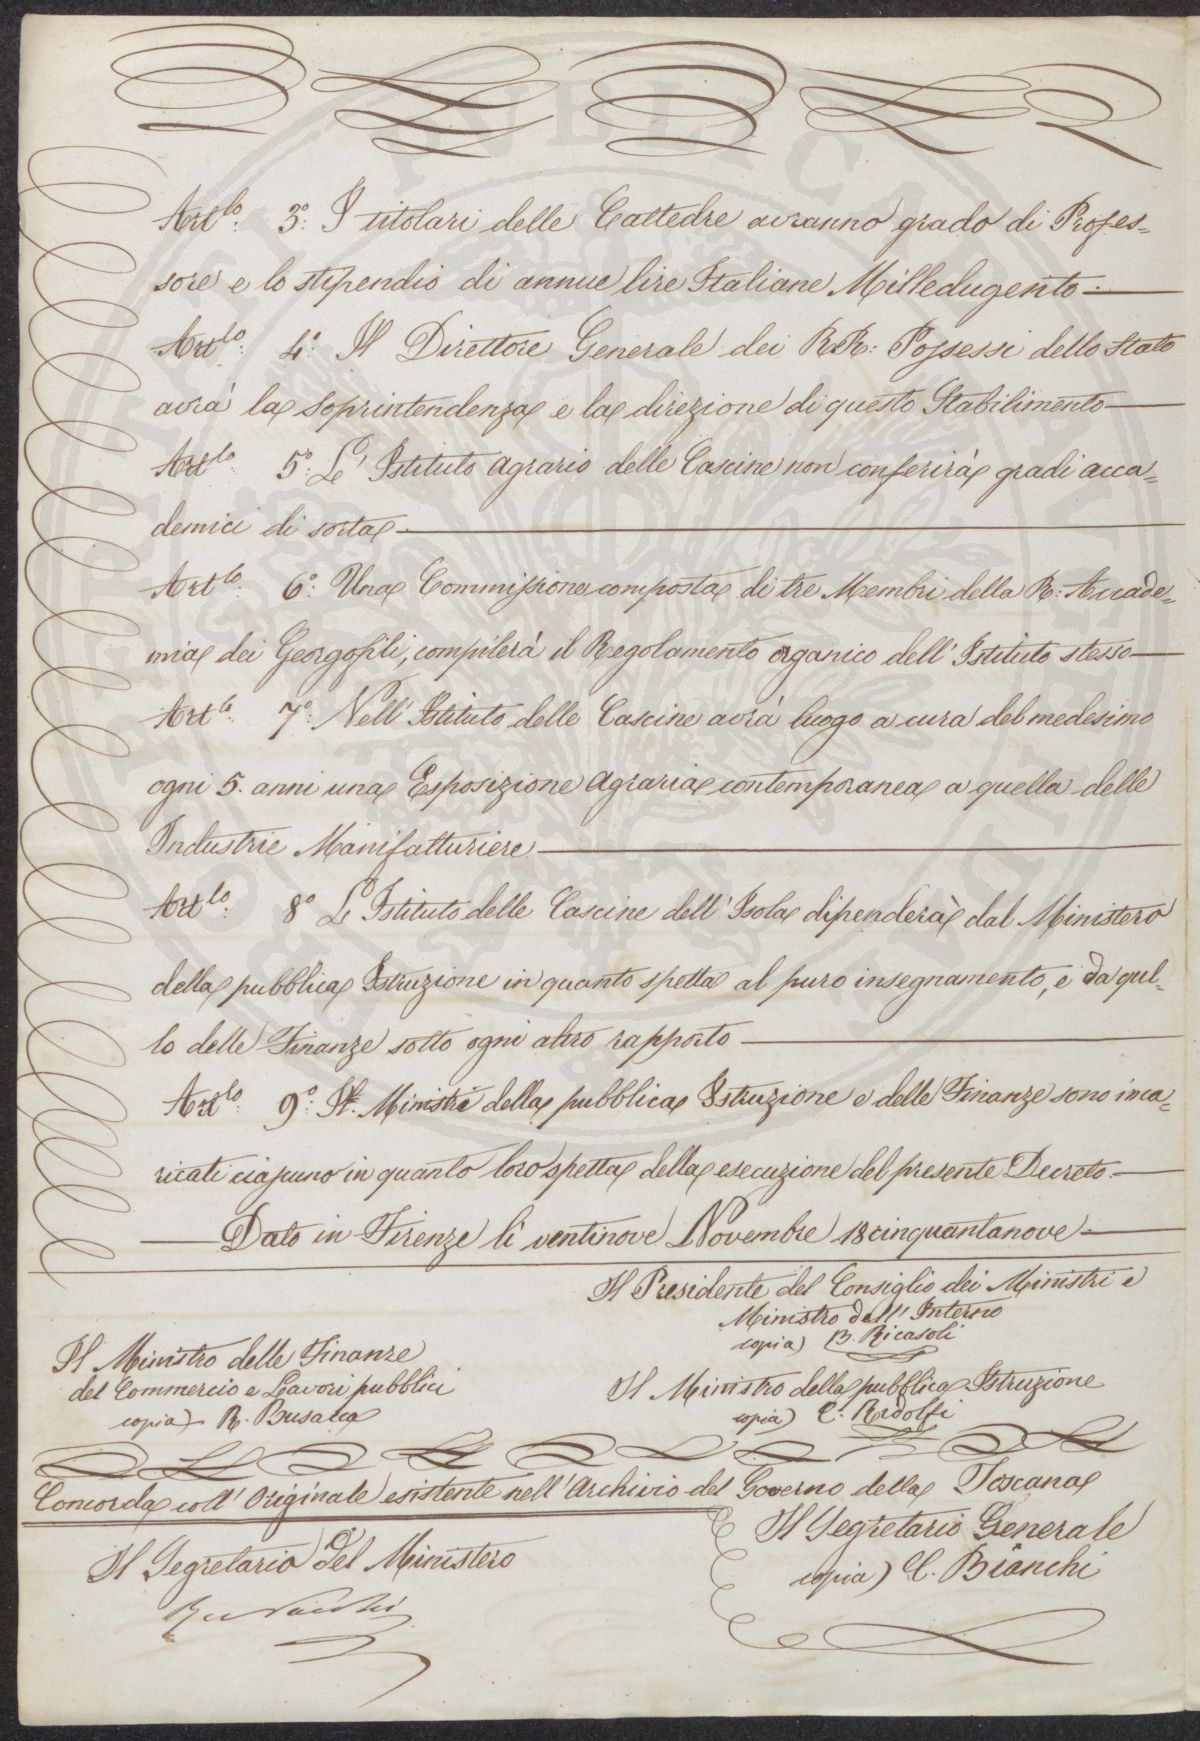 Art.lo 3.o I titolari delle Cattedre avranno grado di Profes=
sore e lo stipendio di annue lire Italiane Milledugento.
Art.lo 4.o Il Direttore Generale dei R.R. Possessi dello Stato
avrà la soprintendenza e la direzione di questo Stabilimento
Art.lo 5.o L'Istituto Agrario delle Cascine non conferirà gradi acca=
demici di sorta.
Art.lo 6.o Una Commissione composta di tre Membri della R. Accade=
mia dei Georgofili, compilerà il Regolamento organico dell'Istituto stesso
Art.lo 7.o Nell'Istituto delle Cascine avrà luogo a cura del medesimo
ogni 5. anni una Esposizione Agraria contemporanea a quella delle
Industrie Manifatturiere
Art.lo 8.o L'Istituto delle Cascine dell'Isola dipenderà dal Ministero
della pubblica Istruzione in quanto spetta al puro insegnamento, e da quel=
lo delle Finanze sotto ogni altro rapporto
Art.lo 9.o I Ministri della pubblica Istruzione e delle Finanze sono inca=
ricati ciascuno in quanto loro spetta della esecuzione del presente Decreto.
Dato in Firenze li ventinove Novembre 18cinquantanove
Il Presidente del Consiglio dei Ministri e
Ministro dell'Interno
copia) B. Ricasoli
Il Ministro delle Finanze
del Commercio e Lavori pubblici
copia) R. Busacca
Il Ministro della pubblica Istruzione
copia) C. Ridolfi
Concorda coll'Originale esistente nell'Archivio del Governo della Toscana
Il Segretario Generale
copia) C. Bianchi
Il Segretario del Ministero